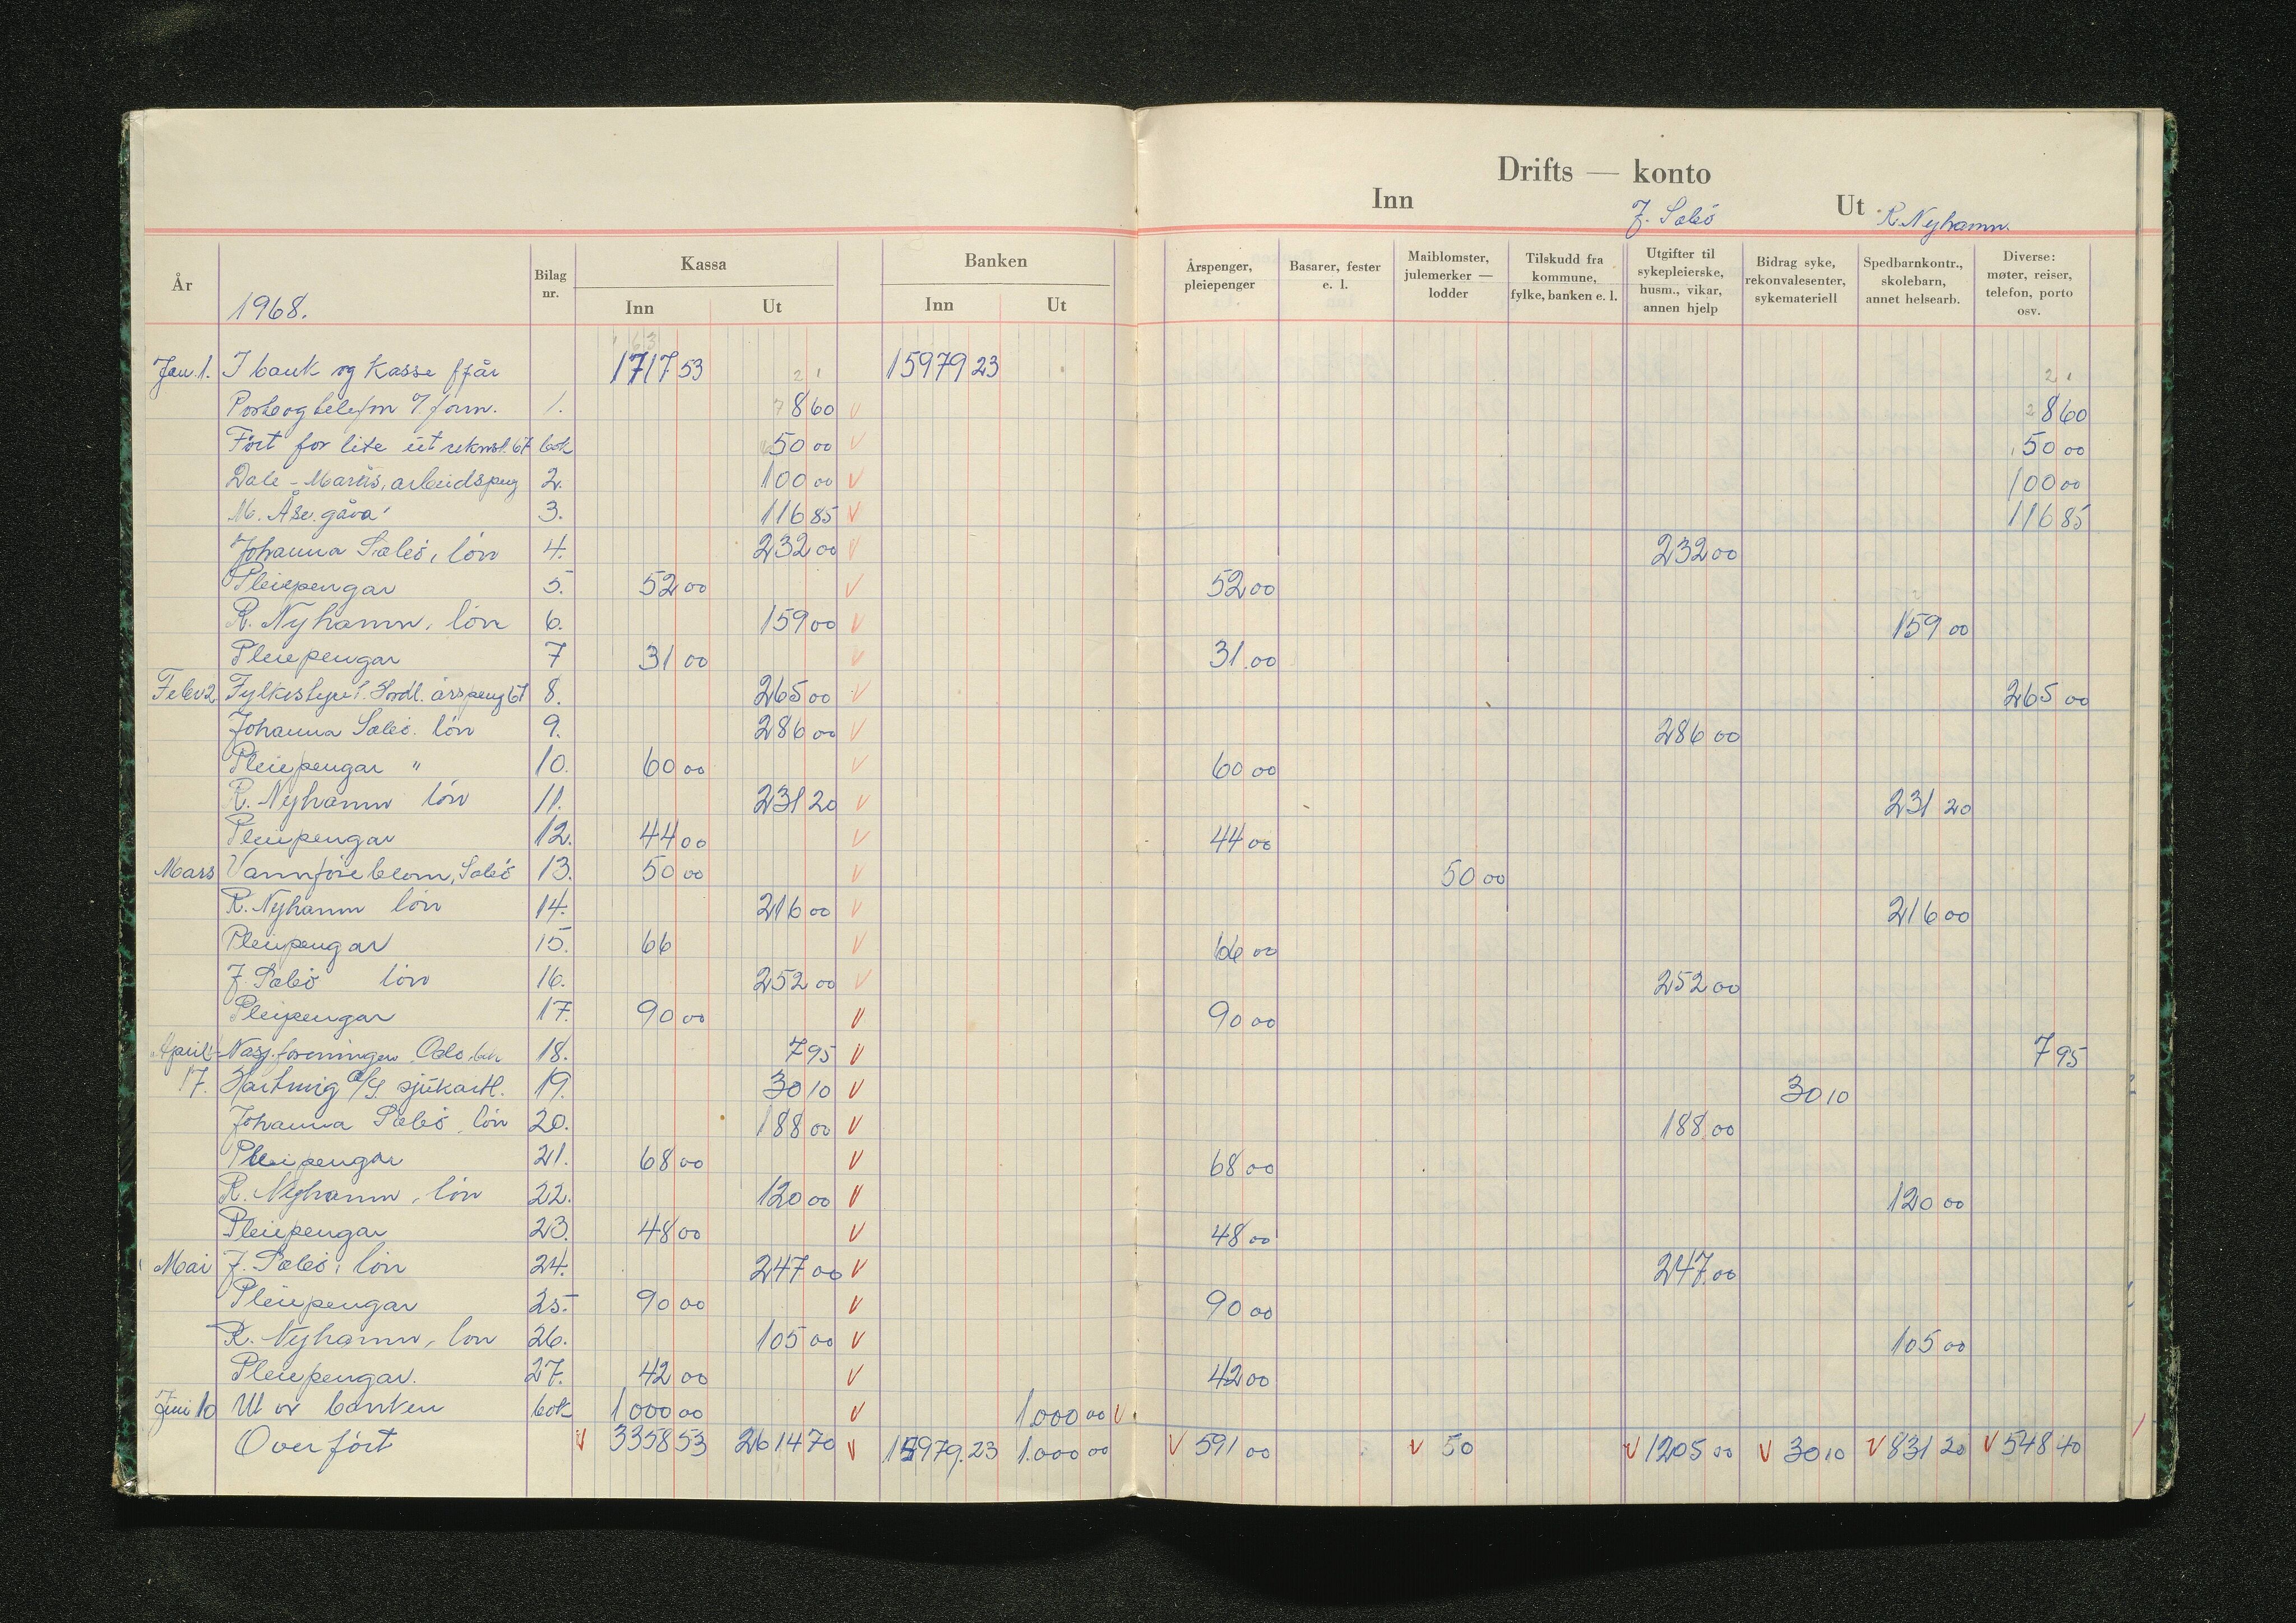 Drifts — konto
Inn Ut
J. Sæbø R. Nyhamn.
År 1968. Bilag nr. Kassa Inn Ut Banken Inn Ut Årspenger, pleiepenger Basarer, fester e. l. Maiblomster, julemerker — lodder Tilskudd fra kommune, fylke, banken e. l. Utgifter til sykepleierske, husm., vikar, annen hjelp Bidrag syke, rekonvalesenter, sykemateriell Spedbarnkontr., skolebarn, annet helsearb. Diverse: møter, reiser, telefon, porto osv.
Jan. 1. I bank og kasse f før 1717 53 15979 23
Porto og telefon 1. 8 60 8 60
Ført for lite ut reknsk. 67 bok 50 00 50 00
Dale - Marüs, arbeidspeng 2. 100 00 100 00
M. Åse. gåva 3. 116 85 116 85
Johanna Sæbø, løn 4. 232 00 232 00
Pleiepengar 5. 52 00 52 00
R. Nyhamn, løn 6. 159 00 159 00
Pleiepengar 7 31 00 31.00
Febr 2 Fylkesstyret. Hordl. årspeng 67 8. 265 00 265 00
Johanna Sæbø. løn 9. 286 00 286 00
Pleiepengar " 10. 60 00 60 00
R. Nyhamn løn 11. 231 20 231 20
Pleiepengar 12. 44 00 44 00
Mars Vannføreblom, Sæbø 13. 50 00 50 00
R. Nyhamn løn 14. 216 00 216 00
Pleiepengar 15. 66 66 00
J. Sæbø løn 16. 252 00 252 00
Pleiepengar 17. 90 00 90 00
April Nasj. foreningen Oslo 18. 7 95 7 95
17. Hartwig A/S. sjukartl. 19. 30 10 30 10
Johanna Sæbø, løn 20. 188 00 188 00
Pleiepengar 21. 68 00 68 00
R. Nyhamn, løn 22. 120 00 120 00
Pleiepengar 23. 48 00 48 00
Mai J. Sæbø, løn 24. 247 00 247 00
Pleiepengar 25. 90 00 90 00
R. Nyhamn, løn 26. 105 00 105 00
Pleiepengar. 27. 42 00 42 00
Juni 10 Ut or banken bok 1000 00 1.000 00
Overført 3358 53 2614 70 15979.23 1.000 00 591 00 50 1205 00 30 10 831 20 548 40